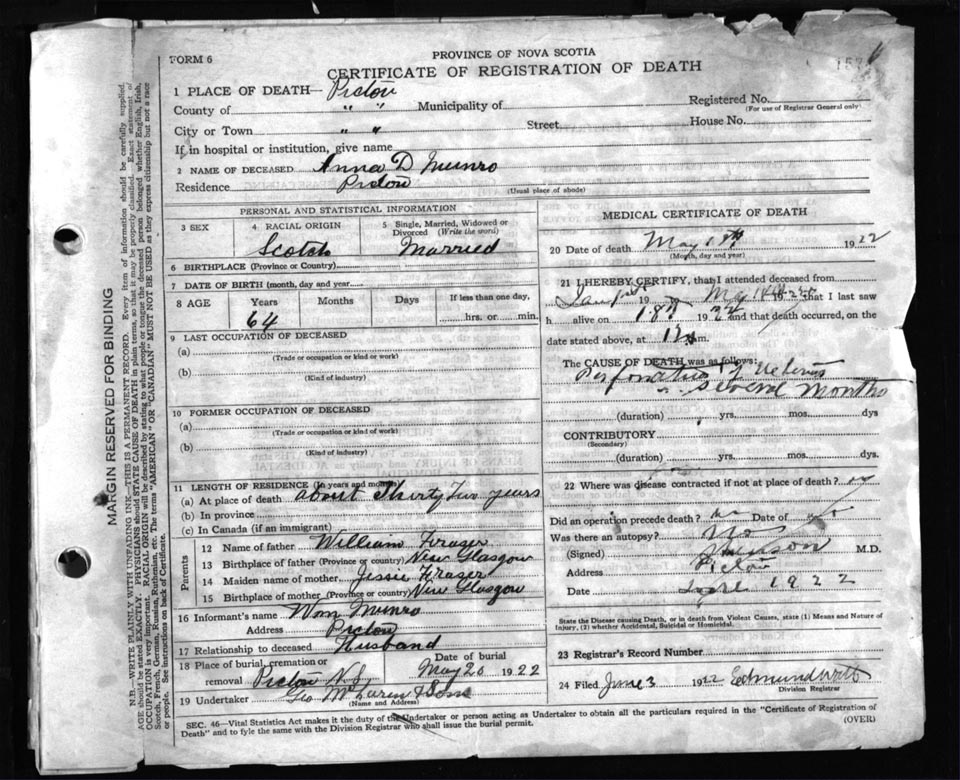 FORM 6
PROVINCE OF NOVA SCOTIA
CERTIFICATE OF REGISTRATION OF DEATH
1 PLACE OF DEATH— Pictou
County of " " Municipality of
Registered No.
(For use of Registrar General only)
City or Town " " Street House No.
If in hospital or institution, give name
2 NAME OF DECEASED Anna D Munro
Residence Pictou
(Usual place of abode)
PERSONAL AND STATISTICAL INFORMATION
3 SEX
4 RACIAL ORIGIN
Scotch
5 Single, Married, Widowed or Divorced (Write the word)
Married
6 BIRTHPLACE (Province or Country)
7 DATE OF BIRTH (month, day and year)
8 AGE Years Months Days If less than one day,
64 hrs. or min.
9 LAST OCCUPATION OF DECEASED
(a)
(Trade or occupation or kind of work)
(b)
(Kind of industry)
10 FORMER OCCUPATION OF DECEASED
(a)
(Trade or occupation or kind of work)
(b)
(Kind of industry)
11 LENGTH OF RESIDENCE (In years and months)
(a) At place of death about Thirty Two years
(b) In province
(c) In Canada (if an immigrant)
Parents
12 Name of father William Fraser
13 Birthplace of father (Province or country) New Glasgow
14 Maiden name of mother Jessie Fraser
15 Birthplace of mother (Province or country) New Glasgow
16 Informant's name Wm Munro
Address Pictou
17 Relationship to deceased Husband
18 Place of burial, cremation or removal Pictou N.S.
Date of burial
May 20 1922
19 Undertaker Geo McLaren & Sons
(Name and Address)
MEDICAL CERTIFICATE OF DEATH
20 Date of death May 1922
(Month, day and year)
21 I HEREBY CERTIFY, that I attended deceased from
19 that I last saw
h alive on 18 1922 and that death occurred, on
date stated above, at m.
The CAUSE OF DEATH was as follows:
Perforation of Uterus
several months
(duration) yrs. mos. dys
CONTRIBUTORY
(Secondary)
(duration) yrs. mos. dys.
22 Where was disease contracted if not at place of death?
Did an operation precede death? no Date of
Was there an autopsy? No
(Signed) M.D.
Address Pictou
Date 1922
State the Disease causing Death, or in death from Violent Causes, state (1) Means and Nature of Injury, (2) whether Accidental, Suicidal or Homicidal.
23 Registrar's Record Number
24 Filed June 3 1922 Edmund Watt
Division Registrar
SEC. 46—Vital Statistics Act makes it the duty of the Undertaker or person acting as Undertaker to obtain all the particulars required in the "Certificate of Registration of
Death" and to fyle the same with the Division Registrar who shall issue the burial permit.
(OVER)
MARGIN RESERVED FOR BINDING
N.B.—WRITE PLAINLY WITH UNFADING INK—THIS IS A PERMANENT RECORD. Every item of information should be carefully supplied.
AGE should be stated EXACTLY. PHYSICIANS should STATE CAUSE OF DEATH in plain terms, so that it may be properly classified. Exact statement of
OCCUPATION is very important. RACIAL ORIGIN will be described by stating to what people or tongue the deceased person belonged whether English, Irish,
Scotch, French, German, Russian, Ruthenian, etc. The terms "AMERICAN" OR "CANADIAN" MUST NOT BE USED as they express citizenship but not a race
or people. See instructions on back of Certificate.